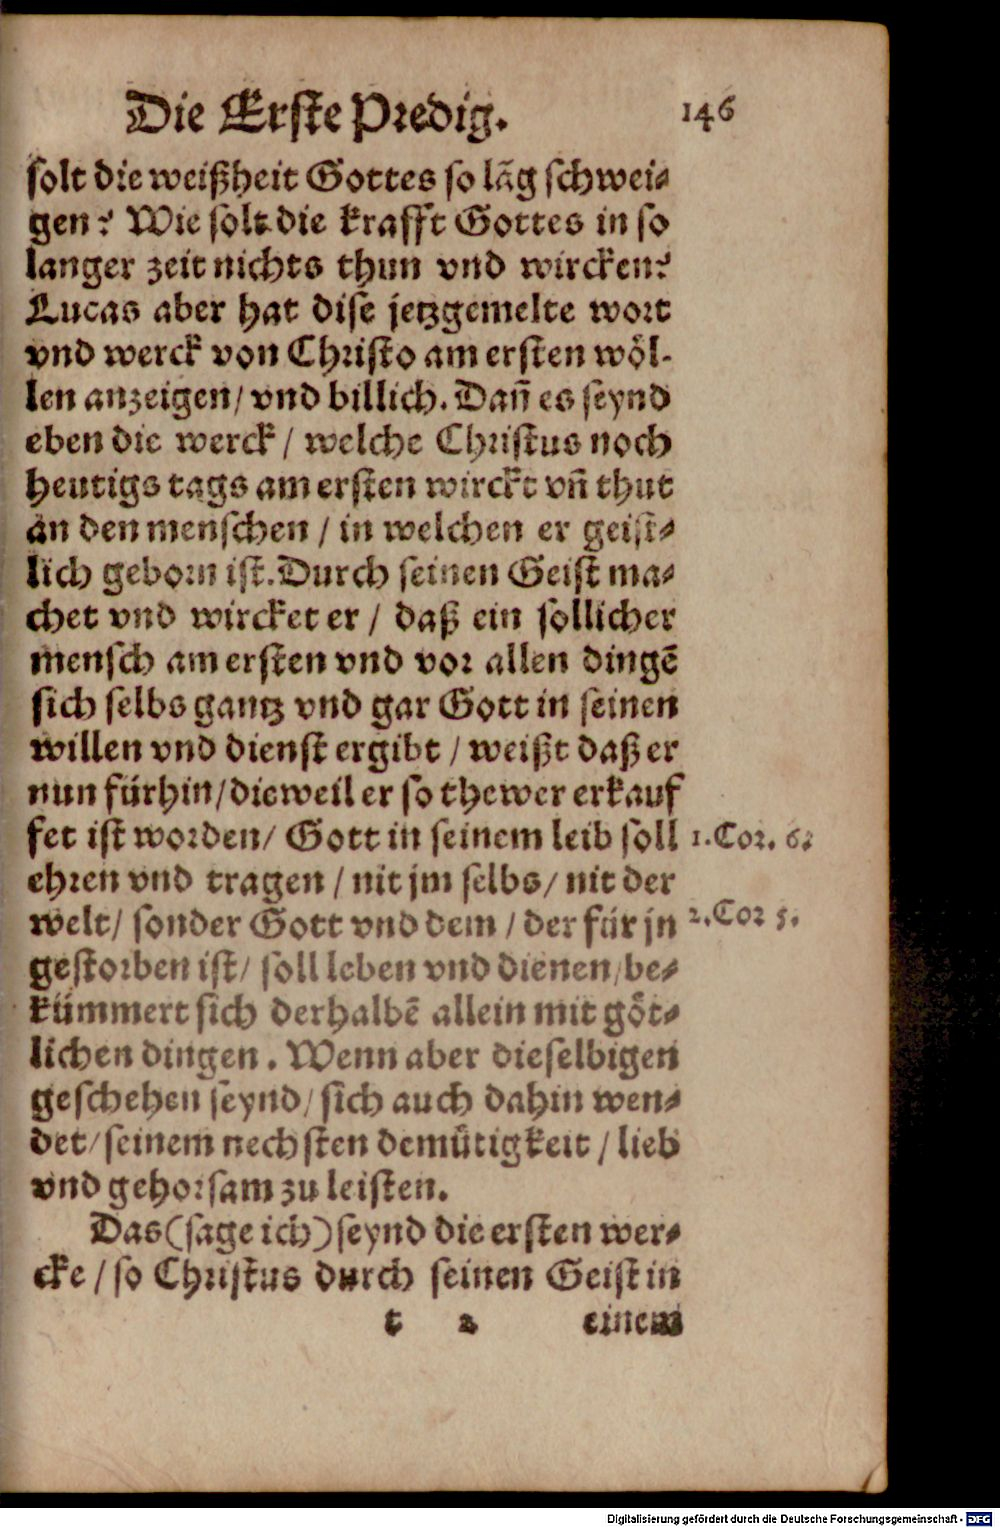 Die Erste Predig. 146
solt die weißheit Gottes so lãg schwei⸗
gen? Wie solt die krafft Gottes in so
langer zeit nichts thun vnd wircken?
Lucas aber hat dise jetzgemelte wort
vnd werck von Christo am ersten wöl-
len anzeigen/ vnd billich. Dañ es seynd
eben die werck / welche Christus noch
heutigs tags am ersten wirckt vñ thut
an den menschen / in welchen er geist⸗
lich geborn ist. Durch seinen Geist ma⸗
chet vnd wircket er / daß ein sollicher
mensch am ersten vnd vor allen dingẽ
sich selbs gantz vnd gar Gott in seinen
willen vnd dienst ergibt / weißt daß er
nun fürhin/ dieweil er so thewer erkauf
fet ist worden/ Gott in seinem leib soll 1. Cor. 6.
ehren vnd tragen / nit jm selbs/ nit der
welt/ sonder Gott vnd dem / der für jn 2. Cor 5.
gestorben ist/ soll leben vnd dienen/ be⸗
kümmert sich derhalbẽ allein mit göt⸗
lichen dingen. Wenn aber dieselbigen
geschehen seynd/ sich auch dahin wen⸗
det/ seinem nechsten demütigkeit / lieb
vnd gehorsam zu leisten.
Das (sage ich) seynd die ersten wer⸗
cke / so Christus durch seinen Geist in
t 2 einem
Digitalisierung gefördert durch die Deutsche Forschungsgemeinschaft - DFG